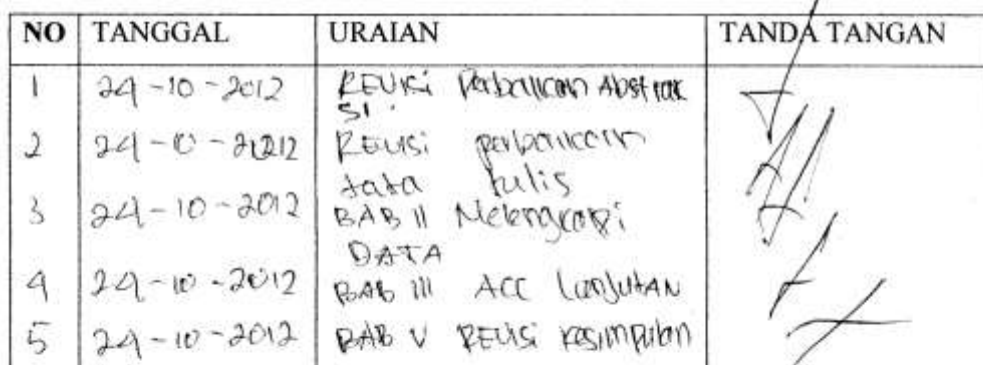 NO TANGGAL URAIAN TANDA TANGAN
1 24-10-2012 REVISI Perbaikan Abstrak
SI
2 24-10-2012 REVISI perbaikan
tata tulis
3 24-10-2012 BAB II Melengkapi
DATA
4 24-10-2012 BAB III ACC LanJUTAN
5 24-10-2012 BAB V REVISI KESIMPULAN